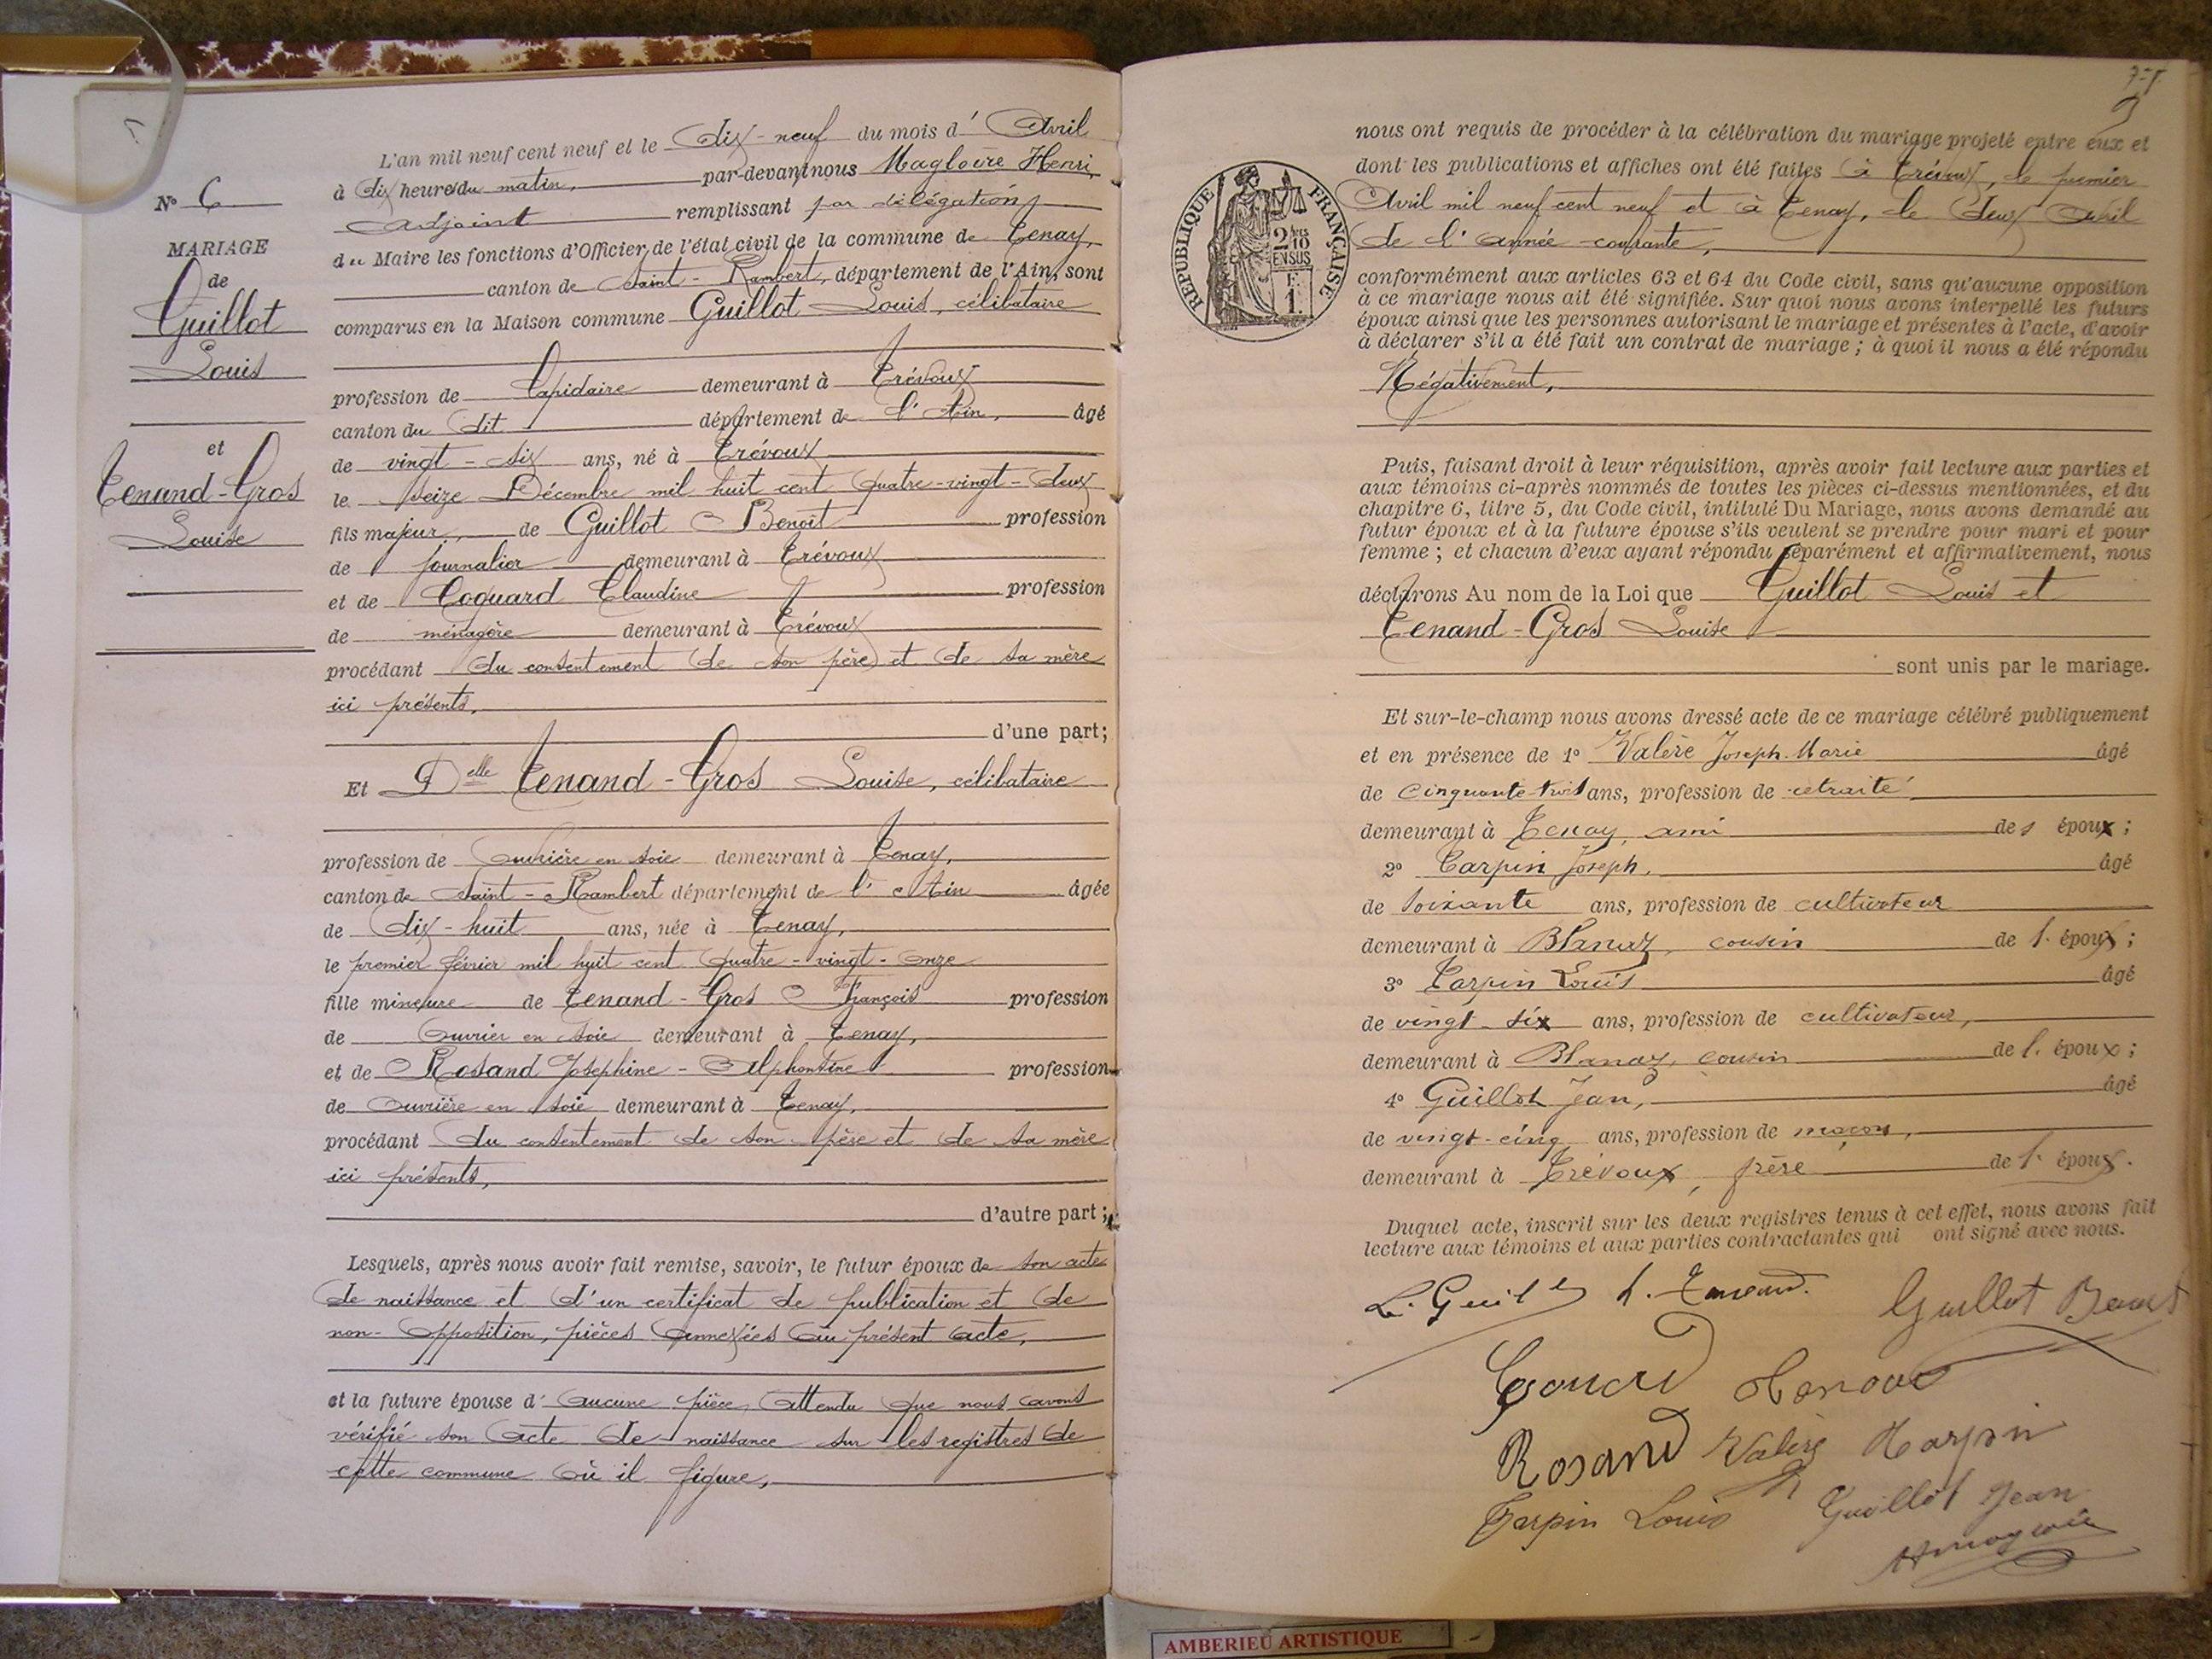 N° 6
MARIAGE
de
Guillot
Louis
et
Tenand-Gros
Louise
L'an mil neuf cent neuf et le dix-neuf du mois d' Avril
à dix heures du matin, par-devant nous Magloire Henri,
adjoint remplissant par délégation
du Maire les fonctions d'Officier de l'état civil de la commune de Tenay,
canton de Saint-Rambert, département de l'Ain, sont
comparus en la Maison commune Guillot Louis, célibataire
profession de Lapidaire demeurant à Trévoux
canton du dit département de l'Ain, âgé
de vingt-six ans, né à Trévoux
le seize Décembre mil huit cent quatre-vingt-deux
fils majeur, de Guillot Benoît profession
de journalier demeurant à Trévoux
et de Coquard Claudine profession
de ménagère demeurant à Trévoux
procédant du consentement de son père et de sa mère
ici présents,
d'une part;
Et Delle Tenand-Gros Louise, célibataire
profession de Ouvrière en soie demeurant à Tenay,
canton de Saint-Rambert département de l'Ain âgée
de dix-huit ans, née à Tenay,
le premier février mil huit cent quatre-vingt-onze
fille mineure de Tenand-Gros François profession
de Ouvrier en soie demeurant à Tenay,
et de Rosand Joséphine-Alphonsine profession
de Ouvrière en soie demeurant à Tenay,
procédant du consentement de son père et de sa mère
ici présents,
d'autre part;
Lesquels, après nous avoir fait remise, savoir, le futur époux de son acte
de naissance et d'un certificat de publication et de
non-opposition, pièces annexées au présent acte,
et la future épouse d'aucune pièce, attendu que nous avons
vérifié son acte de naissance sur les registres de
cette commune où il figure,
RÉPUBLIQUE FRANÇAISE
2/10
EN SUS
F.
1.
nous ont requis de procéder à la célébration du mariage projeté entre eux et
dont les publications et affiches ont été faites à Trévoux, le premier
Avril mil neuf cent neuf et à Tenay, le deux Avril
de l'année courante,
conformément aux articles 63 et 64 du Code civil, sans qu'aucune opposition
à ce mariage nous ait été signifiée. Sur quoi nous avons interpellé les futurs
époux ainsi que les personnes autorisant le mariage et présentes à l'acte, d'avoir
à déclarer s'il a été fait un contrat de mariage ; à quoi il nous a été répondu
Négativement,
Puis, faisant droit à leur réquisition, après avoir fait lecture aux parties et
aux témoins ci-après nommés de toutes les pièces ci-dessus mentionnées, et du
chapitre 6, titre 5, du Code civil, intitulé Du Mariage, nous avons demandé au
futur époux et à la future épouse s'ils veulent se prendre pour mari et pour
femme ; et chacun d'eux ayant répondu séparément et affirmativement, nous
déclarons Au nom de la Loi que Guillot Louis et
Tenand-Gros Louise
sont unis par le mariage.
Et sur-le-champ nous avons dressé acte de ce mariage célébré publiquement
et en présence de 1° Valère Joseph-Marie âgé
de cinquante-trois ans, profession de retraité
demeurant à Tenay, ami des époux ;
2° Carpin Joseph, âgé
de soixante ans, profession de cultivateur
demeurant à Blanaz, cousin de l. époux ;
3° Carpin Louis âgé
de vingt-six ans, profession de cultivateur,
demeurant à Blanaz, cousin de l. époux ;
4° Guillot Jean, âgé
de vingt-cinq ans, profession de maçon,
demeurant à Trévoux, frère de l. époux.
Duquel acte, inscrit sur les deux registres tenus à cet effet, nous avons fait
lecture aux témoins et aux parties contractantes qui ont signé avec nous.
Guillot Benoit
Rosand Valère
Louis Guillot Jean
AMBERIEU ARTISTIQUE